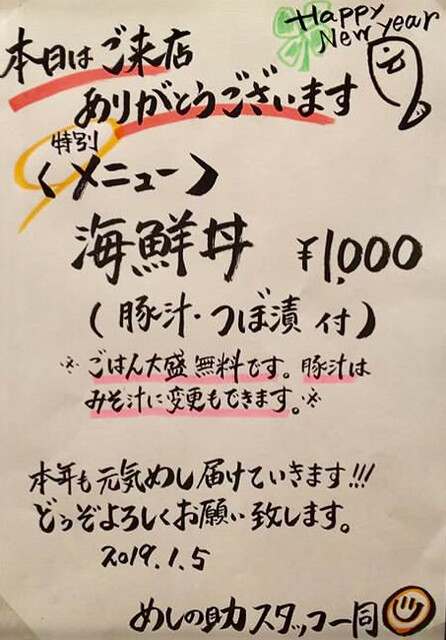 Happy
New year
本日はご来店
ありがとうございます
特別
〈メニュー〉
海鮮丼 ¥1,000
(豚汁・つぼ漬 付)
※ごはん大盛無料です。豚汁は
みそ汁に変更もできます。※
本年も元気めし届けていきます!!!
どうぞよろしくお願い致します。
2019.1.5
めしの助スタッフ一同